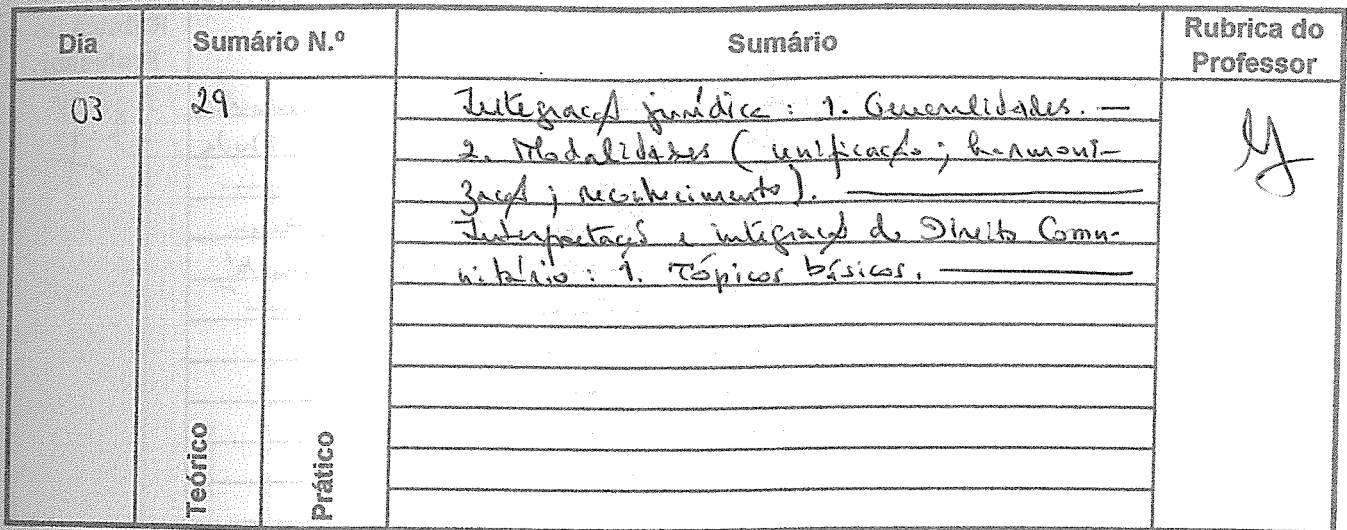 Dia Sumário N.º Sumário Rubrica do Professor
03 29 Integração jurídica : 1. Generalidades. —
2. Modalidades ( unificação ; harmoni-
zação ; reconhecimento ). —
Interpretação e integração do Direito Comu-
nitário : 1. Tópicos básicos. —
Teórico Prático